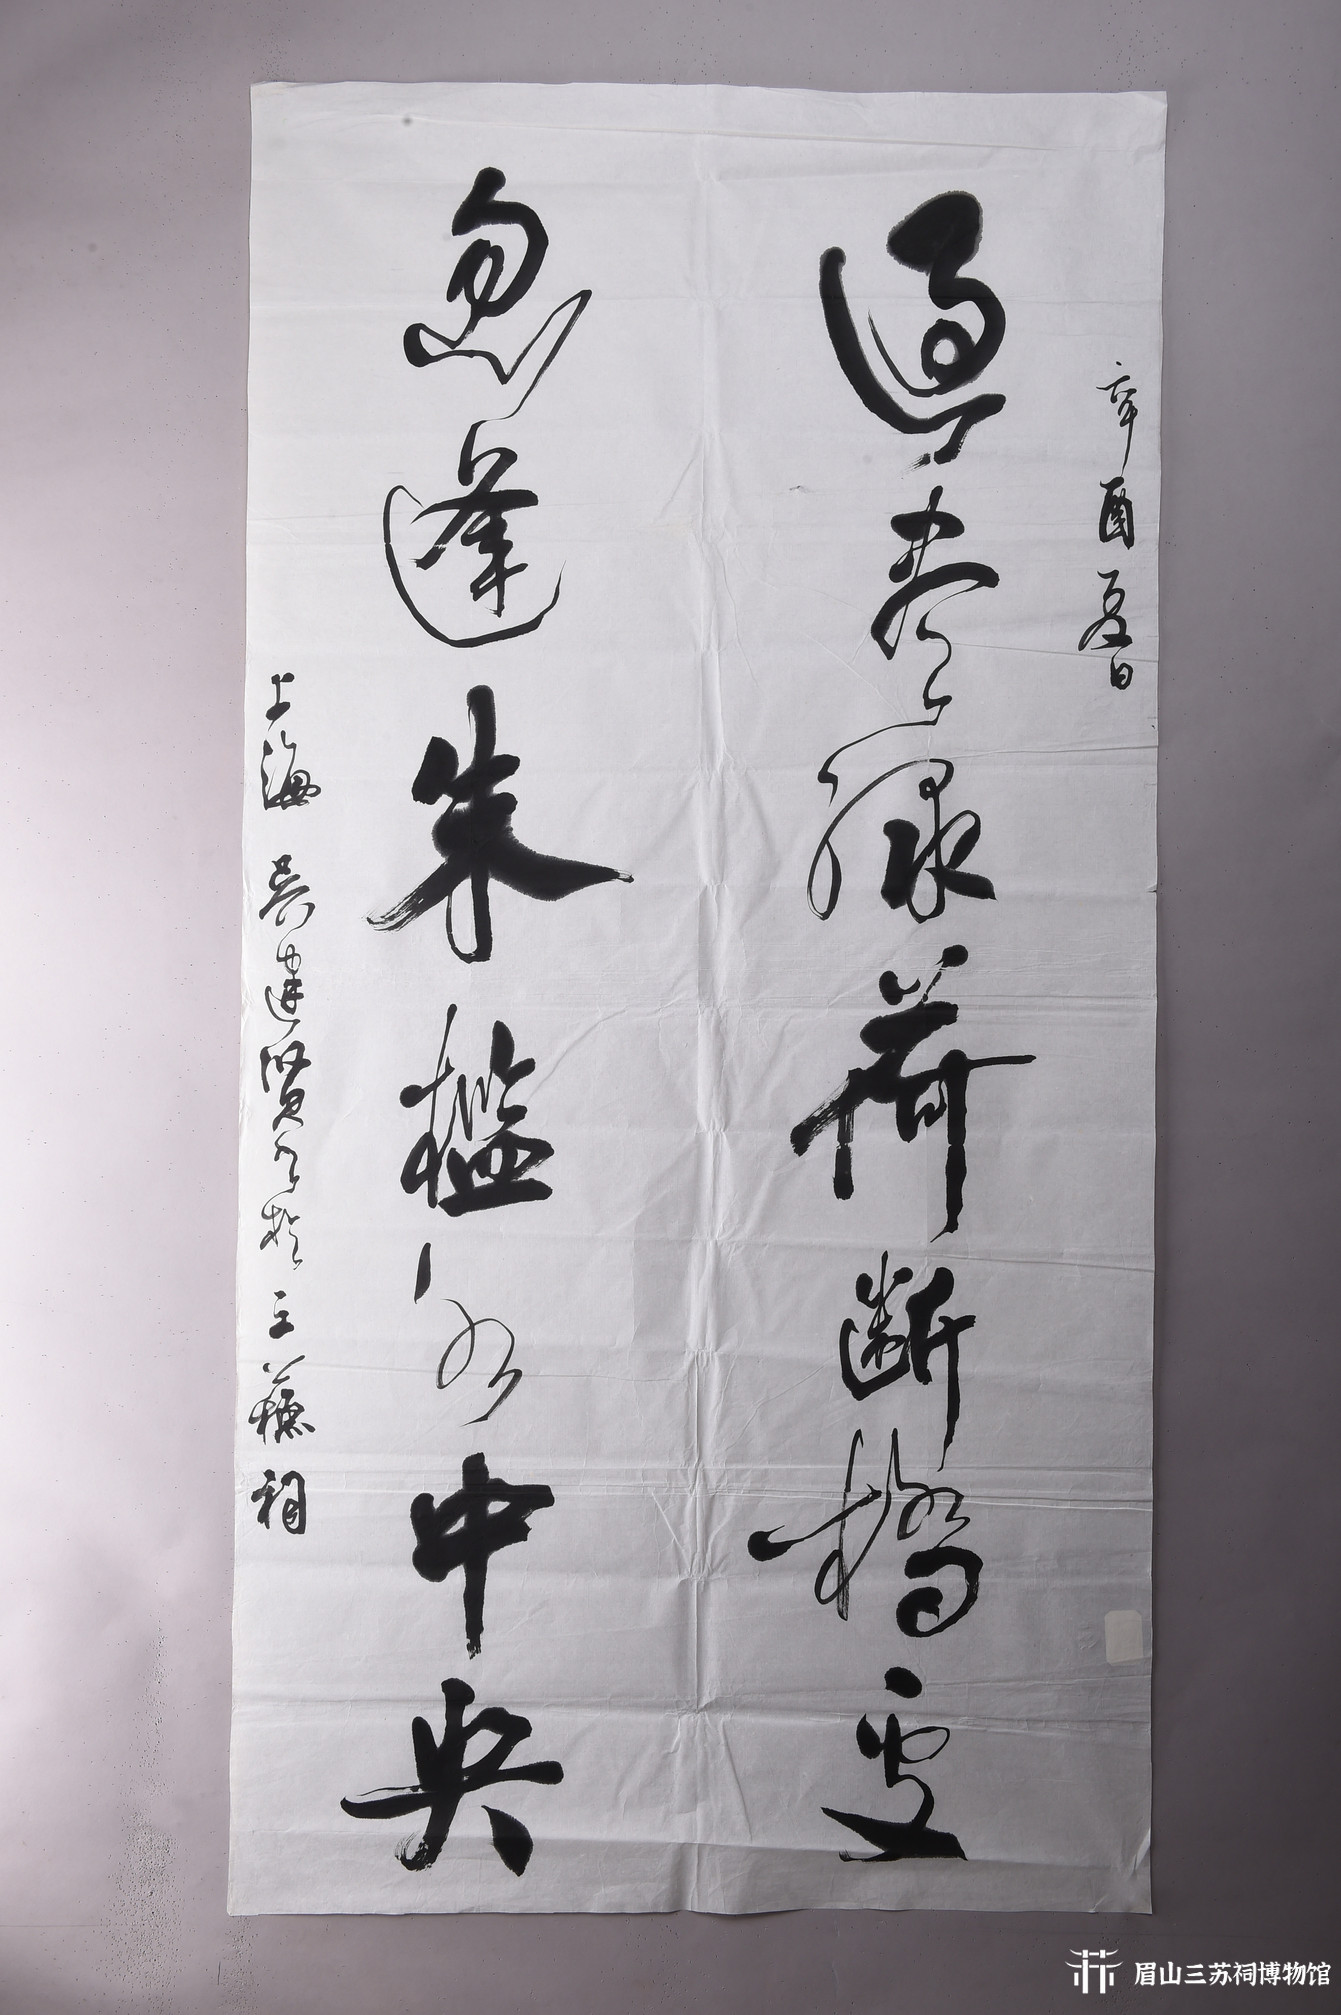 辛酉夏日
過盡綠荷斷橋處
忽逢朱檻水中央
上海 吳建賢書於三蘇祠
眉山三苏祠博物馆